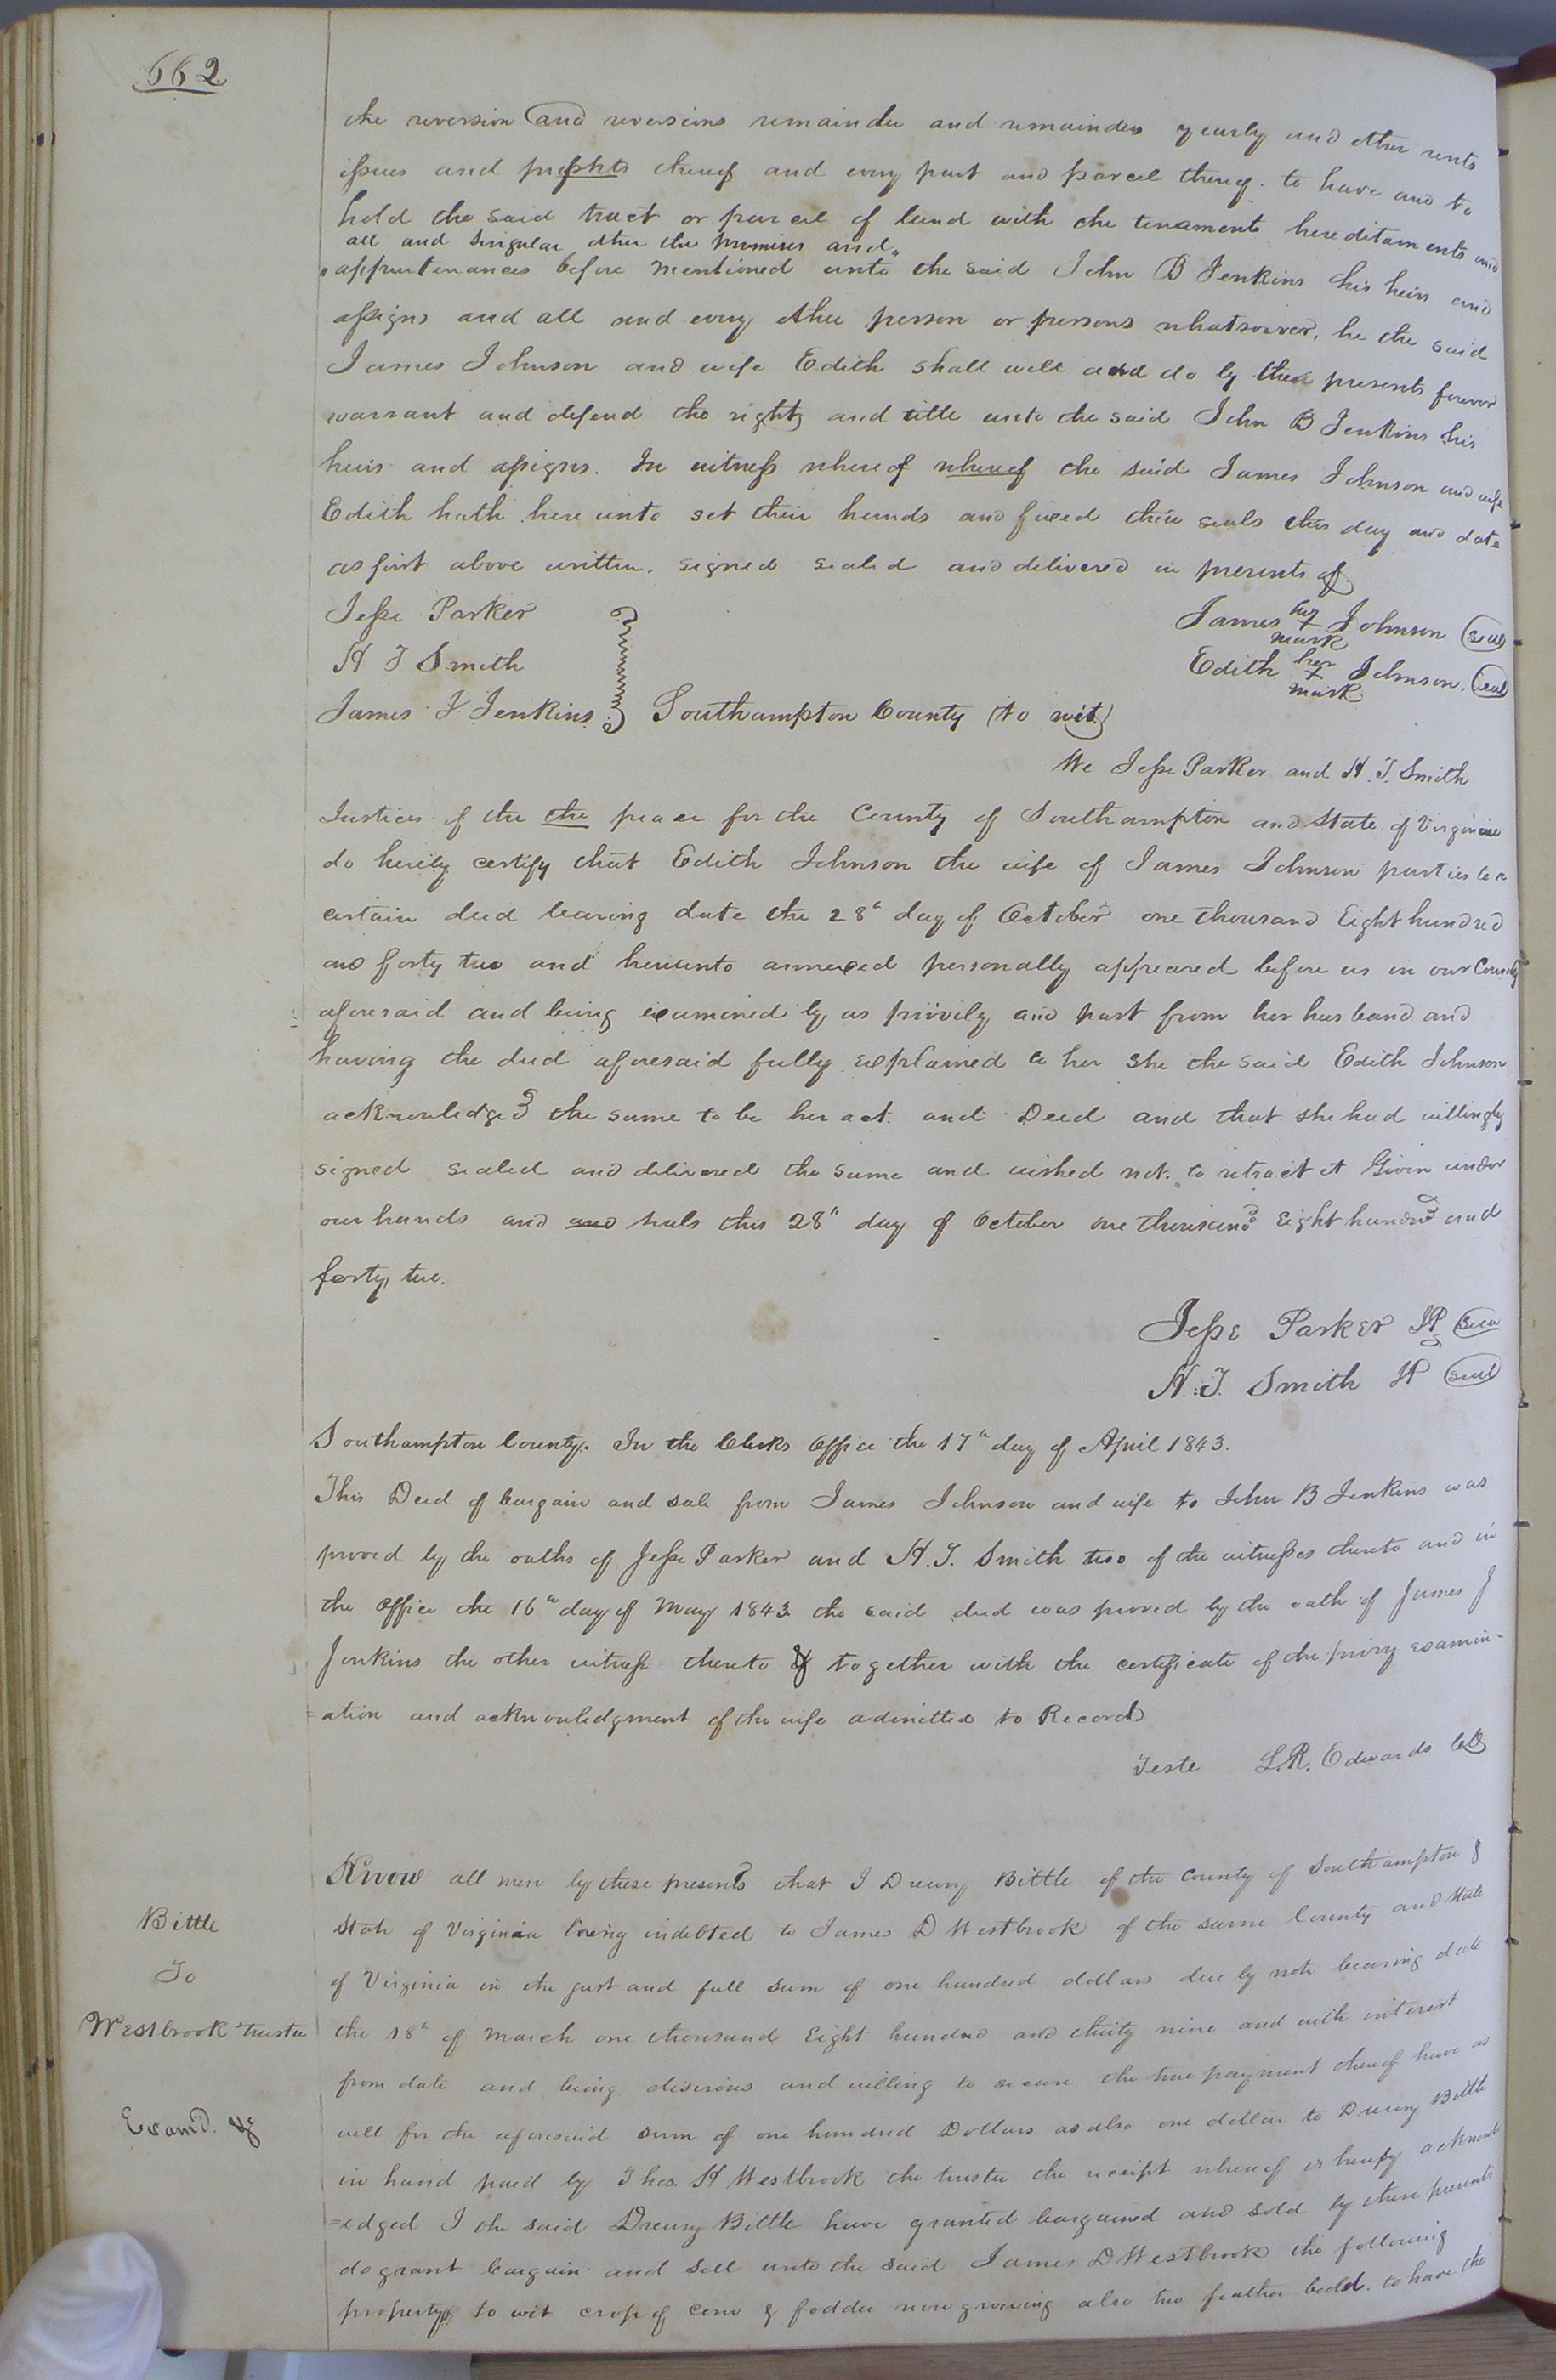 662
the reversion and reversions remainder and remainders yearly and other rents
issues and profits thereof and every part and parcel thereof. to have and to
hold the said tract or parcel of land with the tenaments hereditaments and
all and singular other the premises and
appurtenances before mentioned unto the said John B Jenkins his heirs and
assigns and all and every other person or persons whatsoever, he the said
James Johnson and wife Edith shall will and do by these presents forever
warrant and defend the right and title unto the said John B Jenkins his
heirs and assigns. In witness whereof whereof the said James Johnson and wife
Edith hath here unto set their hands and fixed their seals this day and date
as first above written. signed sealed and delivered in presents of
Jesse Parker
H T Smith
James J Jenkins
James his + mark Johnson (seal)
Edith her + mark Johnson. (seal)
Southampton County (to wit)
We Jesse Parker and H. T. Smith
Justices of the the peace for the County of Southampton and State of Virginia
do hereby certify that Edith Johnson the wife of James Johnson parties to a
certain deed bearing date the 28th day of October one thousand Eight hundred
and forty two and hereunto annexed personally appeared before us in our County
aforesaid and being examined by us privily and part from her husband and
having the deed aforesaid fully explained to her she the said Edith Johnson
acknowledged the same to be her act. and Deed and that she had willingly
signed sealed and delivered the same and wished not to retract it Given under
our hands and and seals this 28th day of October one thousand Eight hundred and
forty two.
Jesse Parker JP (seal)
H. T. Smith JP (seal)
Southampton County. In the Clerks Office the 17th day of April 1843.
This Deed of bargain and sale from James Johnson and wife to John B Jenkins was
proved by the oaths of Jesse Parker and H. T. Smith two of the witnesses thereto and in
the Office the 16th day of May 1843 the said deed was proved by the oath of James J
Jenkins the other witness thereto & together with the certificate of the privy examin-
=ation and acknowledgment of the wife admitted to Record
Teste L. R. Edwards Clk
Bittle
To
Westbrook trustee
Examd. &c
Know all men by these presents that I Drewry Bittle of the County of Southampton &
State of Virginia being indebted to James D Westbrook of the same County and State
of Virginia in the just and full sum of one hundred dollars due by note bearing date
the 18th of March one thousand Eight hundred and thirty nine and with interest
from date and being desirous and willing to secure the true payment thereof have as
well for the aforesaid sum of one hundred Dollars as also one dollar to Drewry Bittle
in hand paid by Thos. H Westbrook the trustee the receipt whereof is hereby acknowl
=edged I the said Drewry Bittle have granted bargained and sold by these presents
do grant bargain and sell unto the said James D Westbrook the following
property to wit crop of corn & fodder now growing also two feather beds. to have the